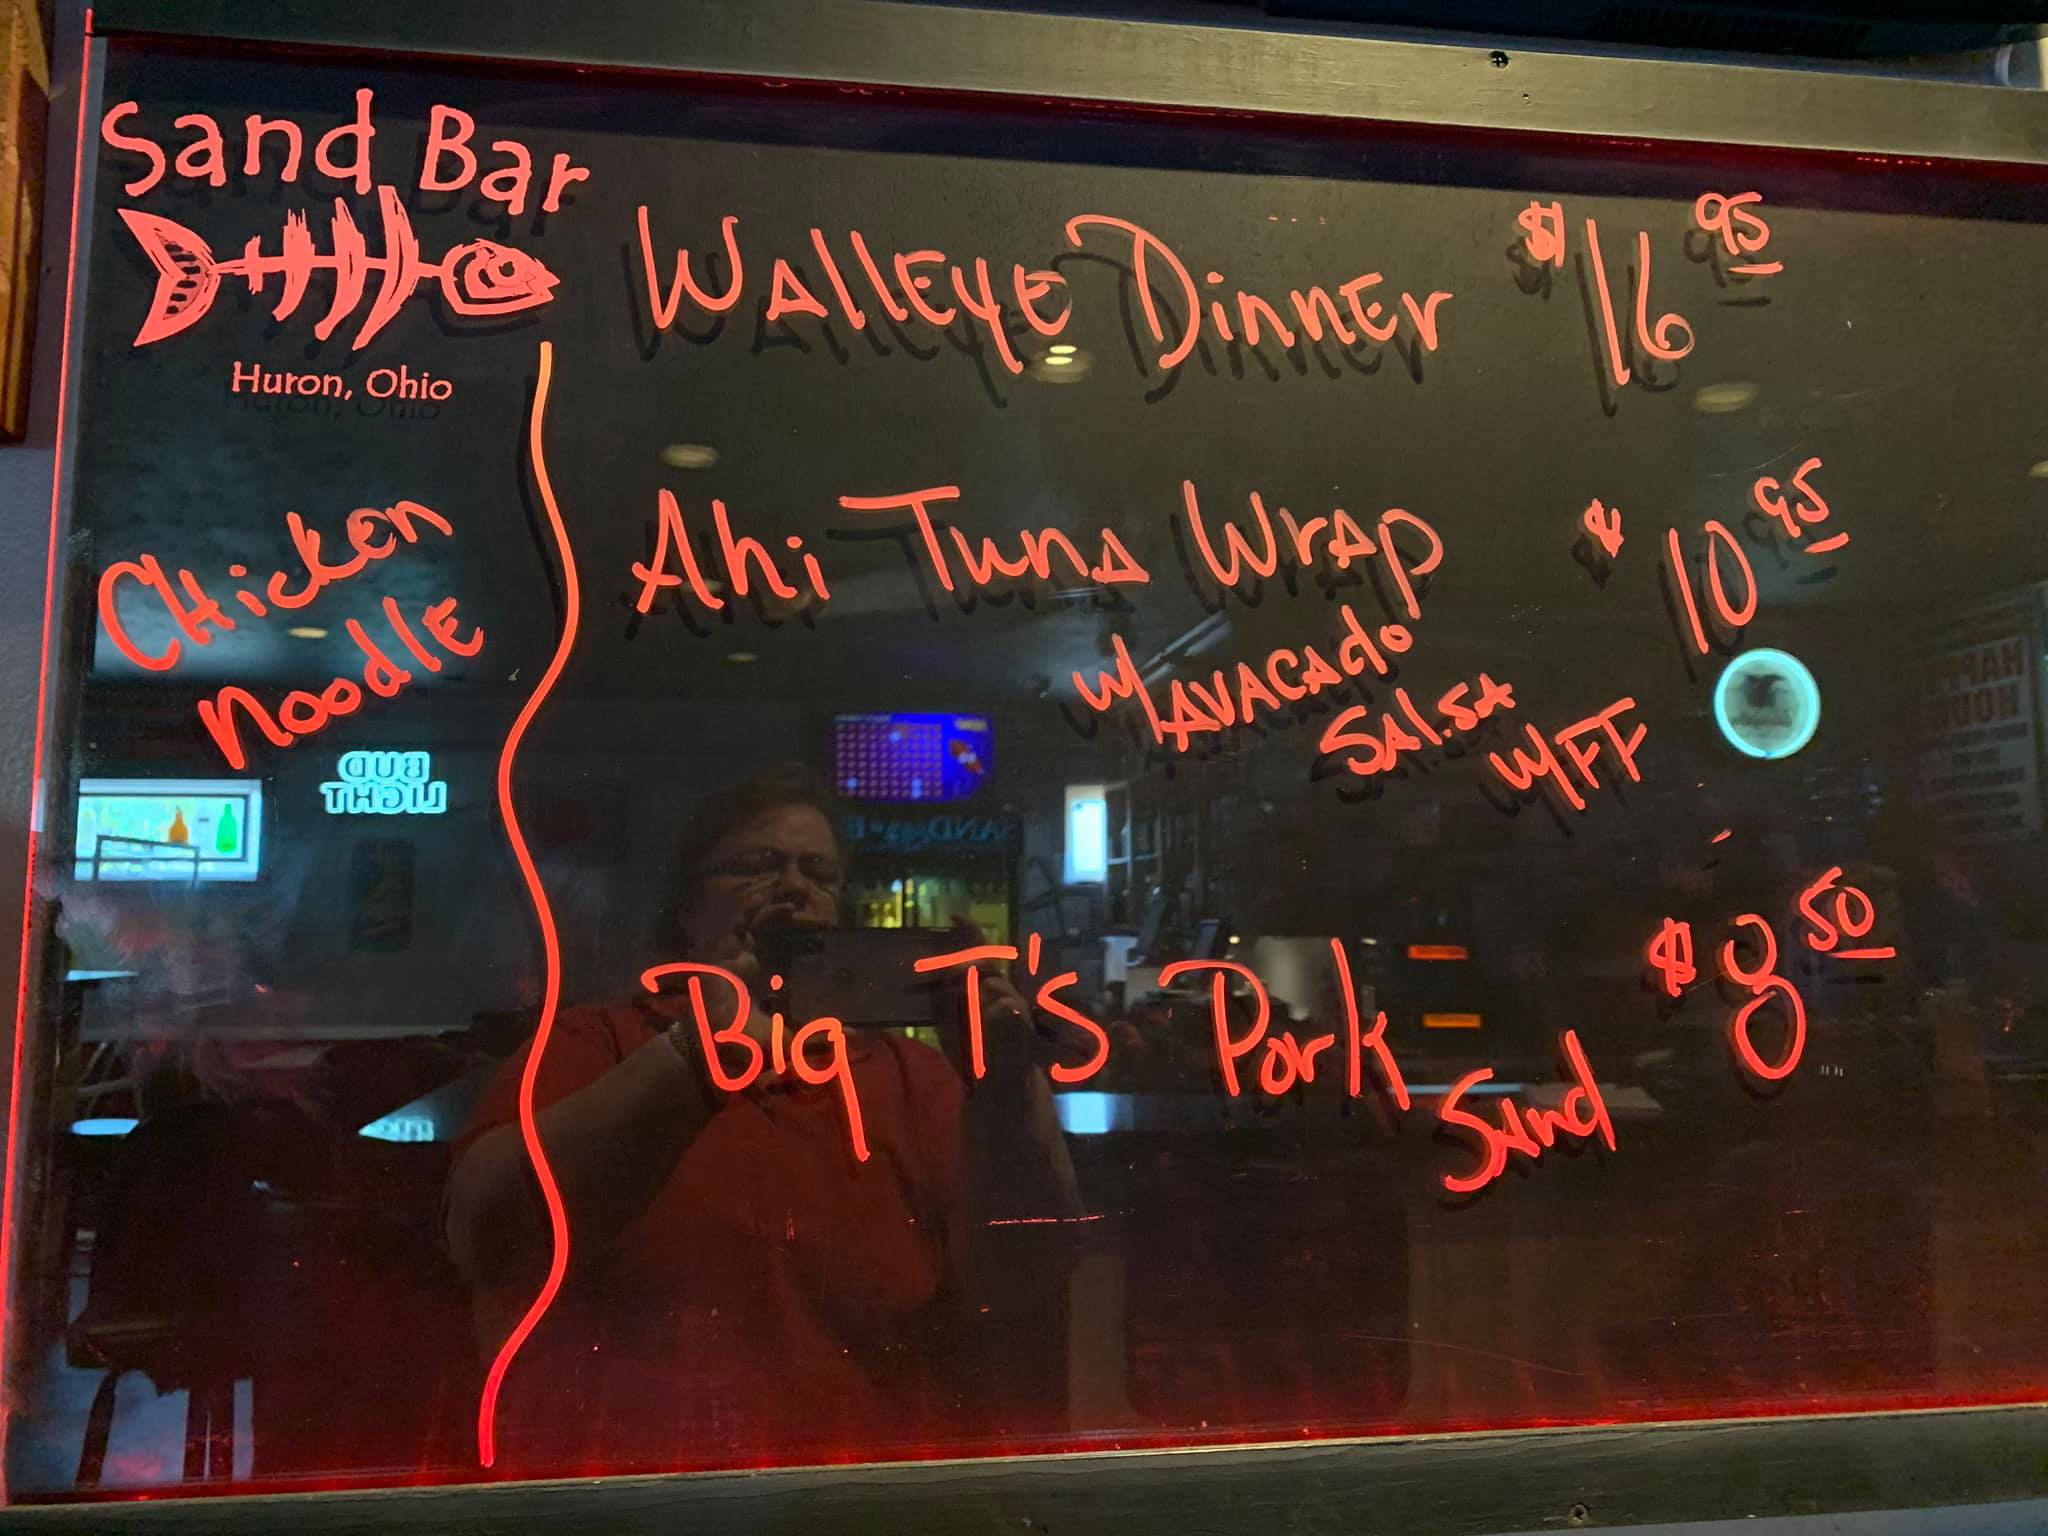 Sand Bar
Huron, Ohio
Chicken
Noodle
Walleye Dinner $16.95
Ahi Tuna Wrap $10.95
w/Avacado
Salsa
w/FF
Big T's Pork $8.50
Sand
BUD
LIGHT
HAPPY
HOUR